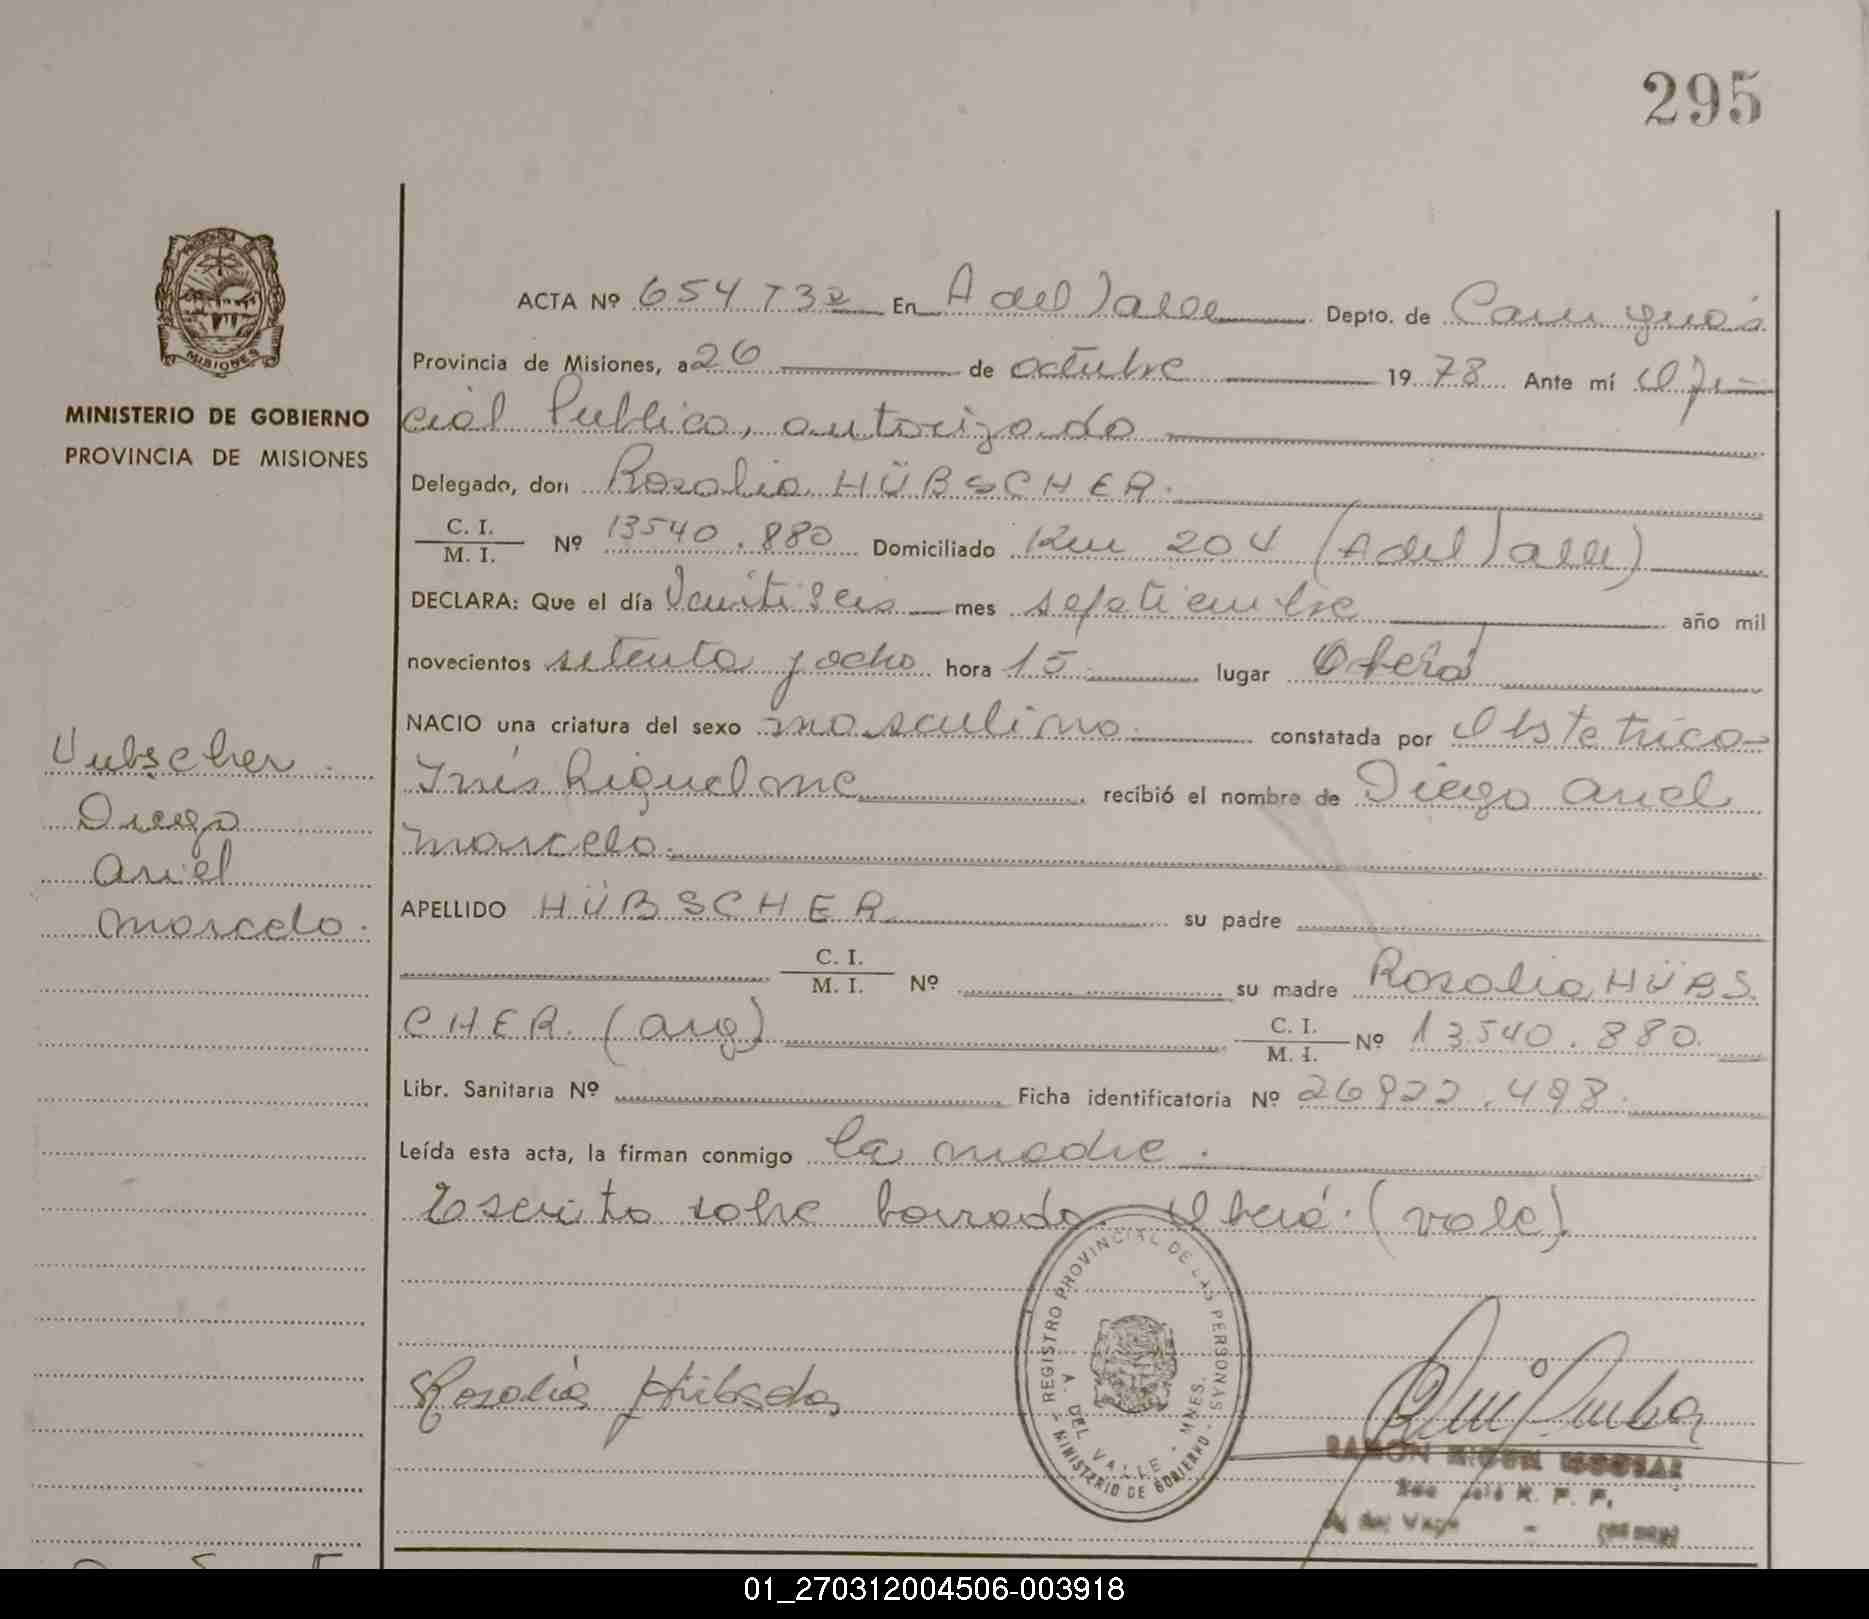 295
PROVINCIA DE
MISIONES
MINISTERIO DE GOBIERNO
PROVINCIA DE MISIONES
Hubscher
Diego
Ariel
Marcelo.
ACTA Nº 654 T 3º En A del Valle Depto. de Cainguás
Provincia de Misiones, a 26 de octubre 1978 Ante mí Ofi-
cial Publico, autorizado
Delegado, don Rosalia HÜBSCHER.
C. I. / M. I. Nº 13540.880 Domiciliado Km 204 (A del Valle)
DECLARA: Que el día Veintiseis mes septiembre año mil
novecientos setenta y ocho hora 15 lugar Oberá
NACIO una criatura del sexo masculino. constatada por Obstetrica
Inés Riquelme recibió el nombre de Diego Ariel
Marcelo.
APELLIDO HÜBSCHER su padre
C. I. / M. I. Nº su madre Rosalia HÜBS
CHER. (arg) C. I. / M. I. Nº 13540.880.
Libr. Sanitaria Nº Ficha identificatoria Nº 26922.498.
Leída esta acta, la firman conmigo la madre.
Escrito sobre borrado. Oberá. (vale)
REGISTRO PROVINCIAL DE LAS PERSONAS
A. DEL VALLE - MNES.
MINISTERIO DE GOBIERNO
Rosalia Hübscher
RAMON
R. P. P.
01_270312004506-003918